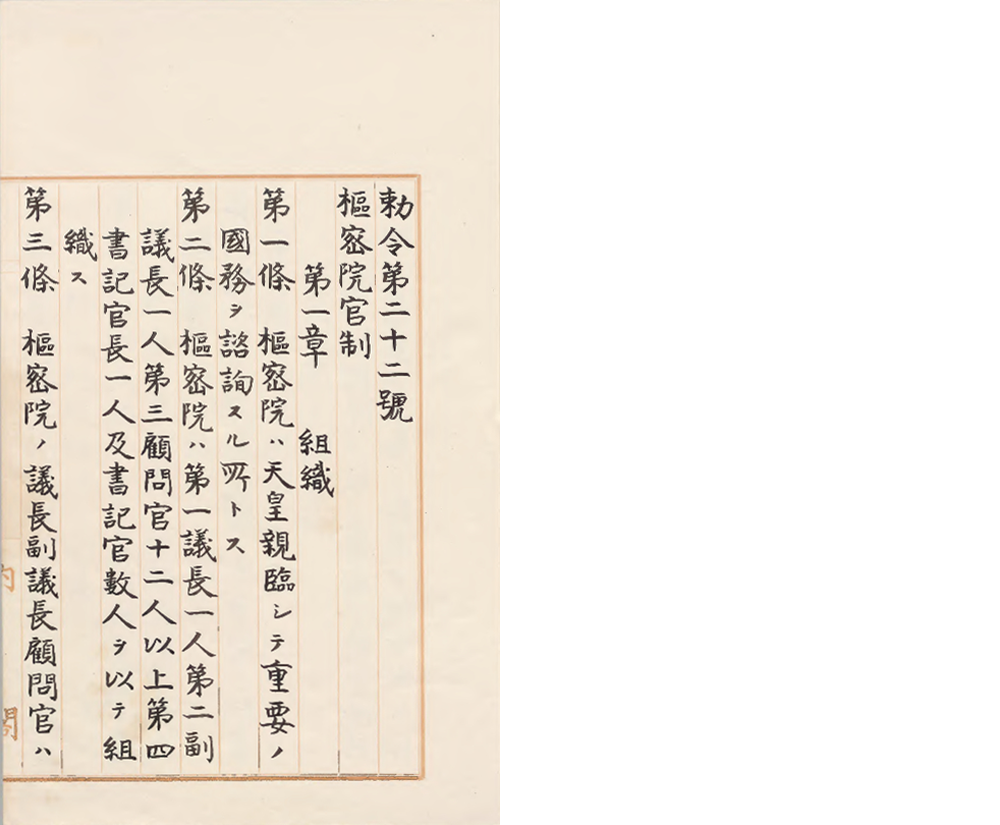 勅令第二十二號
樞密院官制
第一章 組織
第一條 樞密院ハ天皇親臨シテ重要ノ
國務ヲ諮詢スル所トス
第二條 樞密院ハ第一議長一人第二副
議長一人第三顧問官十二人以上第四
書記官長一人及書記官數人ヲ以テ組
織ス
第三條 樞密院ノ議長副議長顧問官ハ
內閣